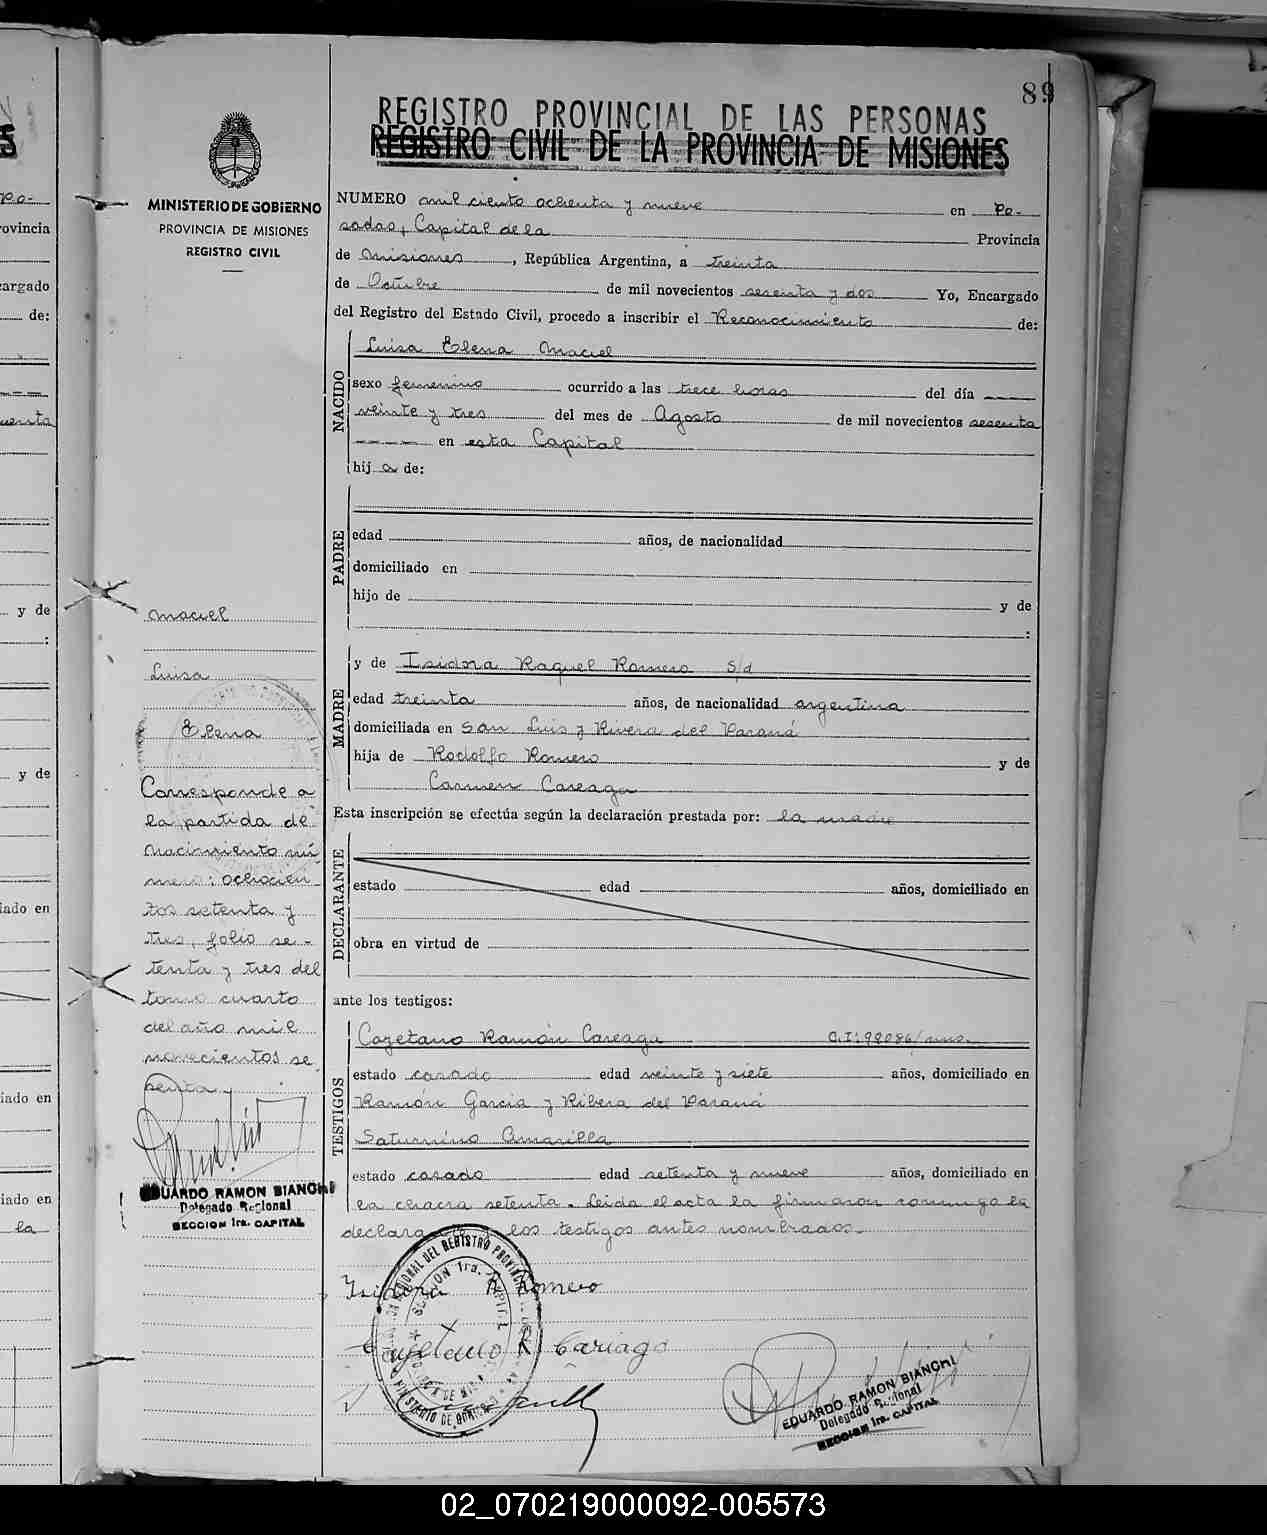 89
REGISTRO PROVINCIAL DE LAS PERSONAS
REGISTRO CIVIL DE LA PROVINCIA DE MISIONES
MINISTERIO DE GOBIERNO
PROVINCIA DE MISIONES
REGISTRO CIVIL
NUMERO mil ciento ochenta y nueve en Po-
sadas, Capital de la Provincia
de Misiones, República Argentina, a treinta
de Octubre de mil novecientos sesenta y dos Yo, Encargado
del Registro del Estado Civil, procedo a inscribir el Reconocimiento de:
NACIDO
Luisa Elena Maciel
sexo femenino ocurrido a las trece horas del día
veinte y tres del mes de Agosto de mil novecientos sesenta
en esta Capital
hij a de:
PADRE
edad años, de nacionalidad
domiciliado en
hijo de y de
:
MADRE
y de Isidora Raquel Romero s/d
edad treinta años, de nacionalidad argentina
domiciliada en San Luis y Rivera del Paraná
hija de Rodolfo Romero y de
Carmen Careaga
Esta inscripción se efectúa según la declaración prestada por: la madre
DECLARANTE
estado edad años, domiciliado en
obra en virtud de
ante los testigos:
TESTIGOS
Cayetano Ramón Careaga C.I:98086/
estado casado edad veinte y siete años, domiciliado en
Ramón Garcia y Ribera del Paraná
Saturnino Amarilla
estado casado edad setenta y nueve años, domiciliado en
la chacra setenta. Leida el acta la firmaron conmigo la
declarante y los testigos antes nombrados.
Isidora R Romero
Cayetano R. Cariago
EDUARDO RAMON BIANCHI
Delegado Regional
SECCION 1ra. CAPITAL
Maciel
Luisa
Elena
Corresponde a
la partida de
nacimiento nú
mero: ochocien-
tos setenta y
tres, folio se-
tenta y tres del
tomo cuarto
del año mil
novecientos se
senta
EDUARDO RAMON BIANCHI
Delegado Regional
SECCION 1ra. CAPITAL
S
Po-
rovincia
cargado
de:
uenta
y de
:
y de
iado en
iado en
iado en
la
02_070219000092-005573